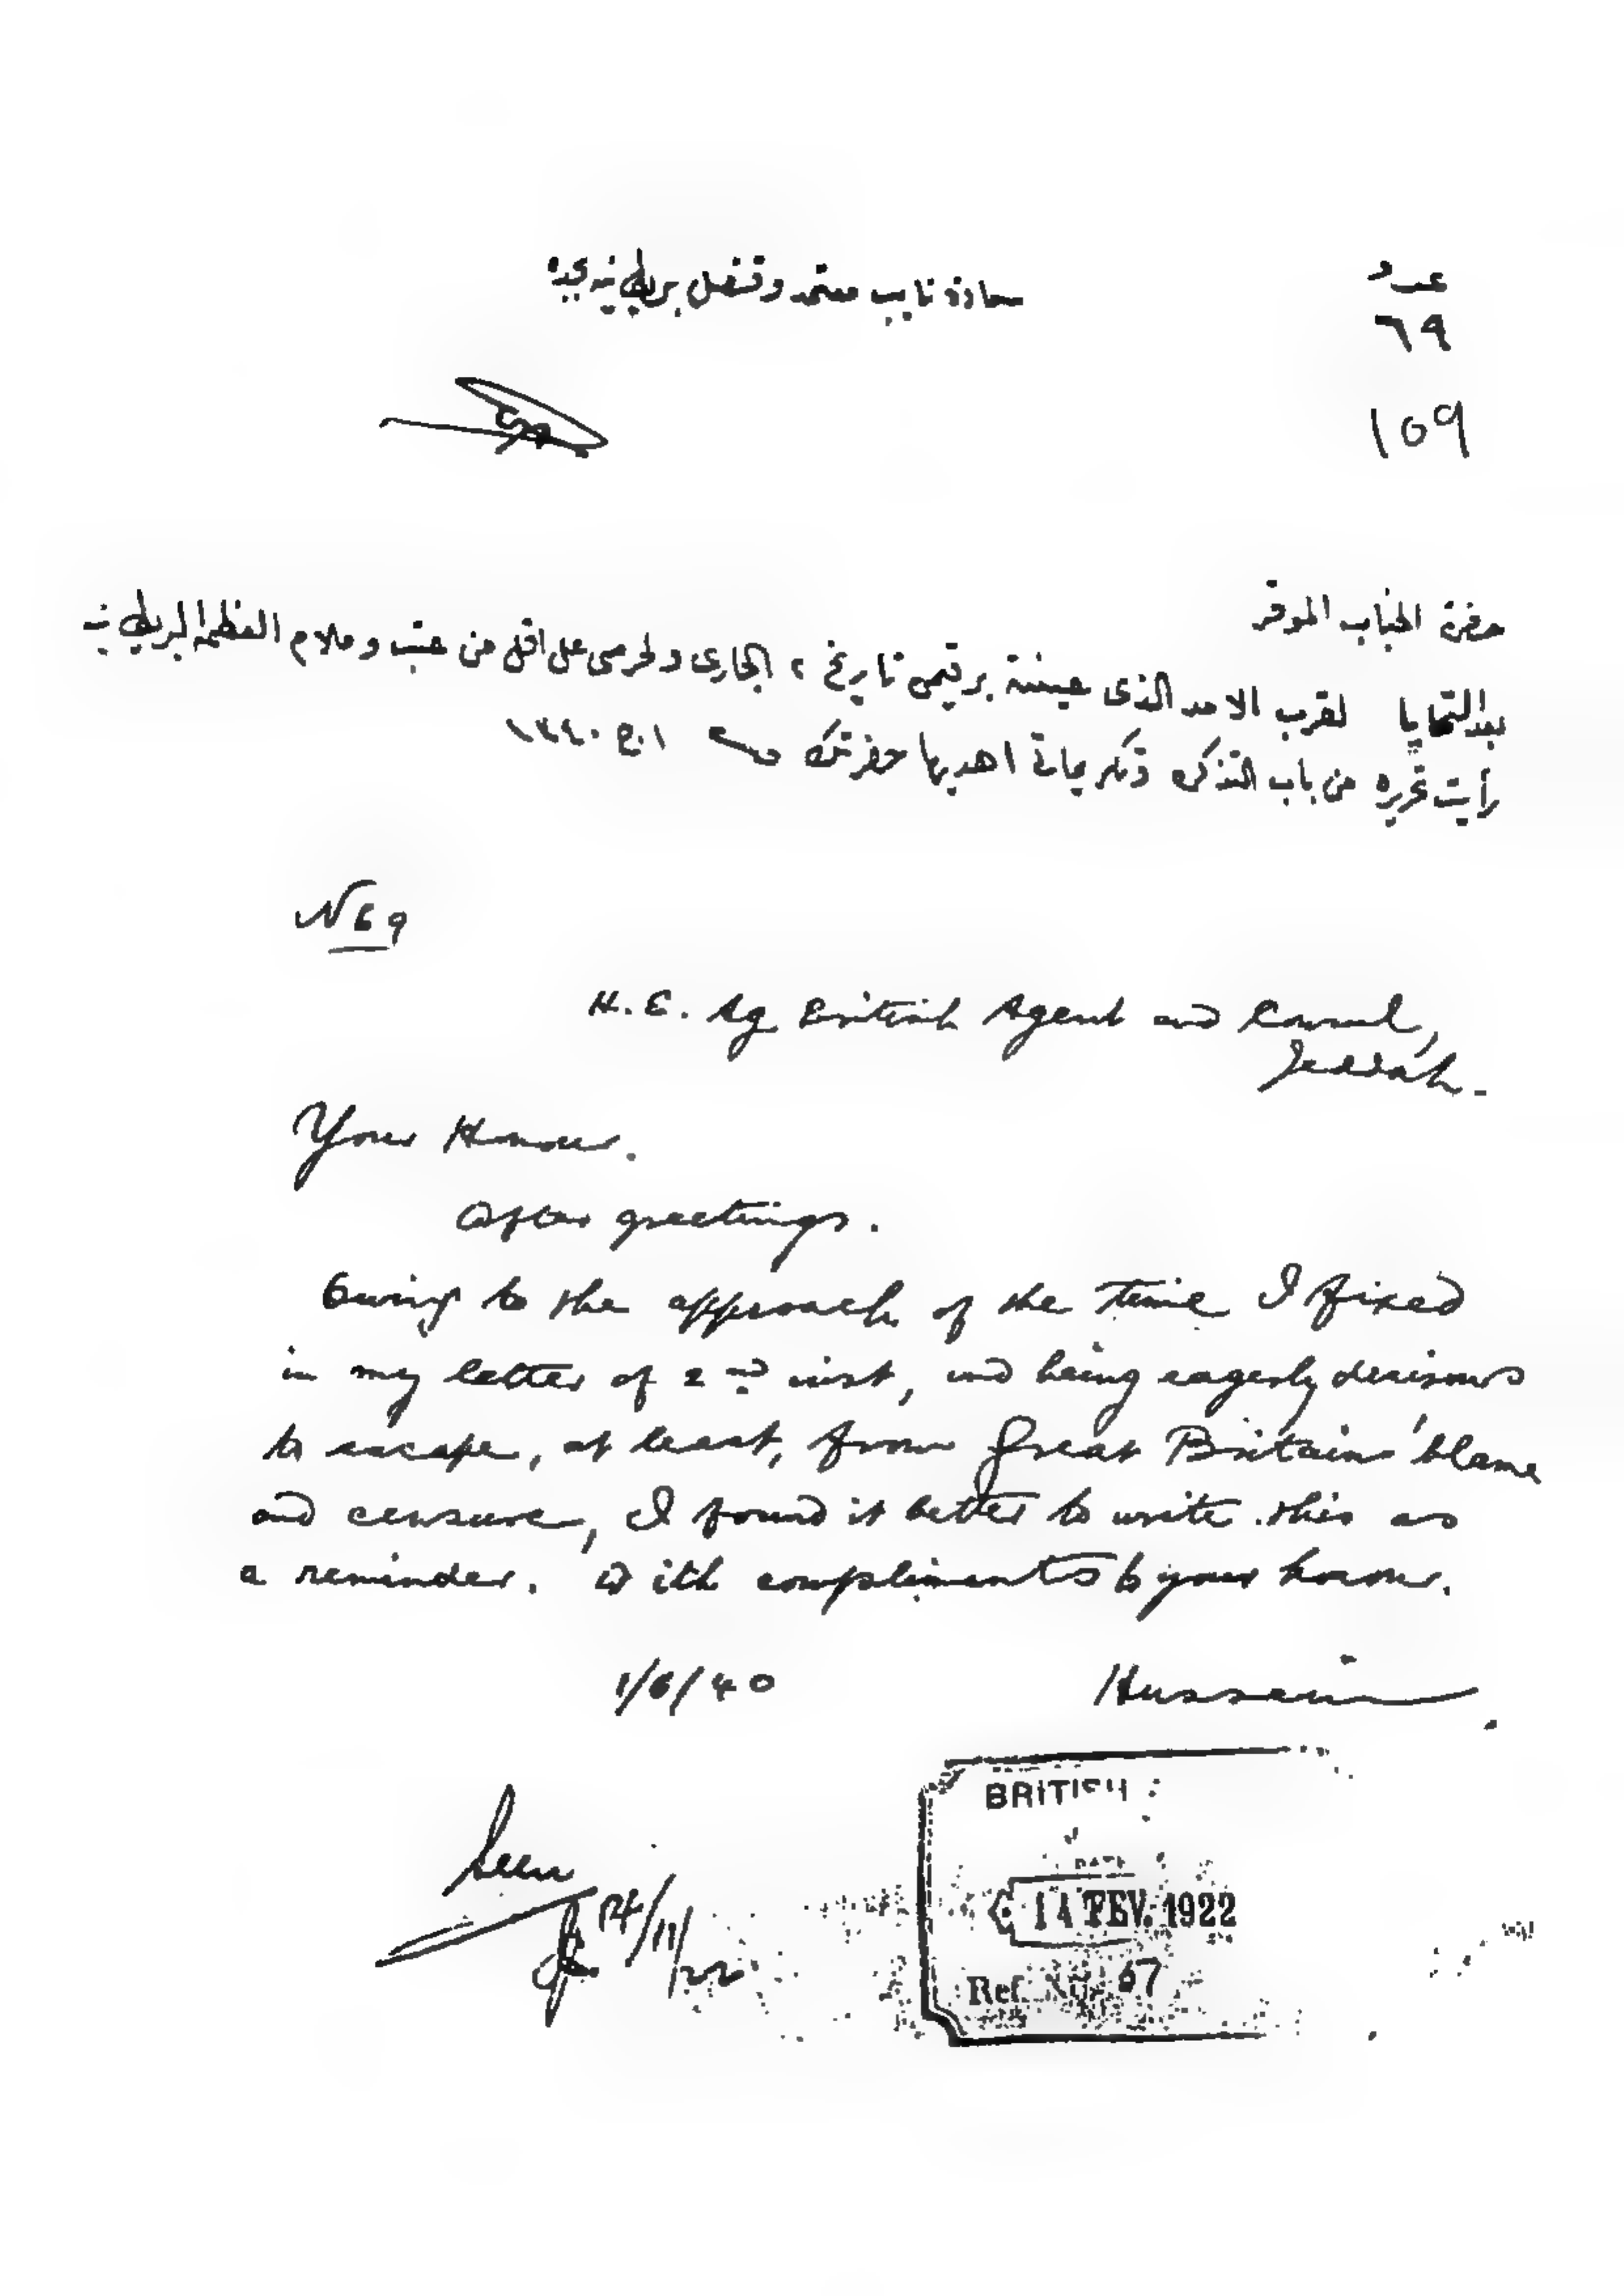 عدد
٦٩
سعادة نايب معتمد وقنصل بريطانيه بجده
١٥٩
حضرة الجناب الموقر
بعد التحايا لقرب الامد الذى عينته برقيمى تاريخ ٢ الجارى ولحرصى على اقل من عتب وملام العظمه البريطانيه
رأيت تحريره من باب التذكره وتكريماتى اهديها حضرتك ١ ج ١٣٤٠
N 69
H. E. Ag British Agent and Consul,
Jeddah.
Your Honour.
After greetings.
Owing to the approach of the time I fixed
in my letter of 2nd inst, and being eagerly desirous
to escape, at least, from Great Britain' blame
and censure, I found it better to write this as
a reminder. With compliments to your honour.
1/6/40 Hussein.
Seen
14/11/22
BRITISH
DATE
14 FEV. 1922
Ref. No. 67